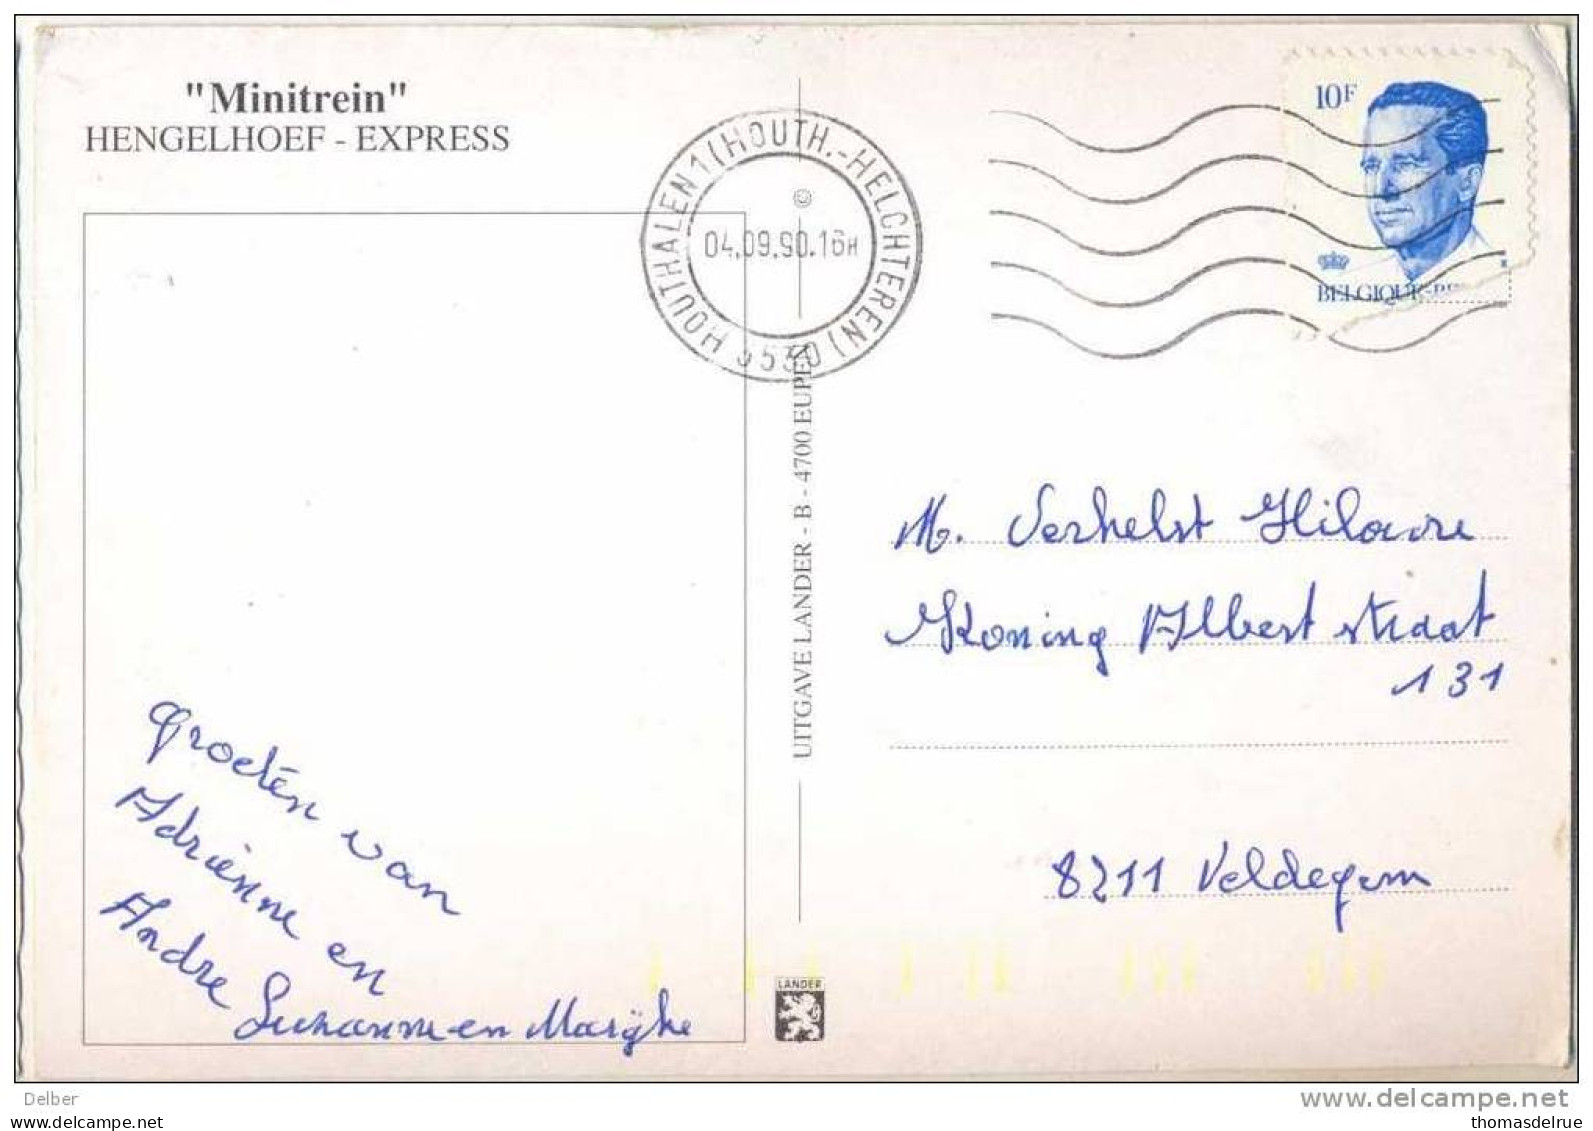 "Minitrein"
HENGELHOEF - EXPRESS
HOUTHALEN 1 (HOUTH.-HELCHTEREN)
3530
04.09.90.16H
10F
BELGIQUE-BE
UITGAVE LANDER - B - 4700 EUPEN
M. Verhelst Hilaire
Koning Albert straat
131
8211 Veldegem
Groeten van
Adriënne en
Andre
Suzanne en Marijke
LANDER
Delber
www.delcampe.net
thomasdelrue